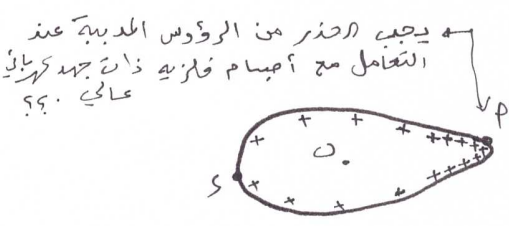 يجب الحذر من الرؤوس المدببة عند
التعامل مع أجسام فلزيه ذات جهد كهربائي
عالي . ؟؟
P
+ + + + + + + +
S
+ + + + + + + +